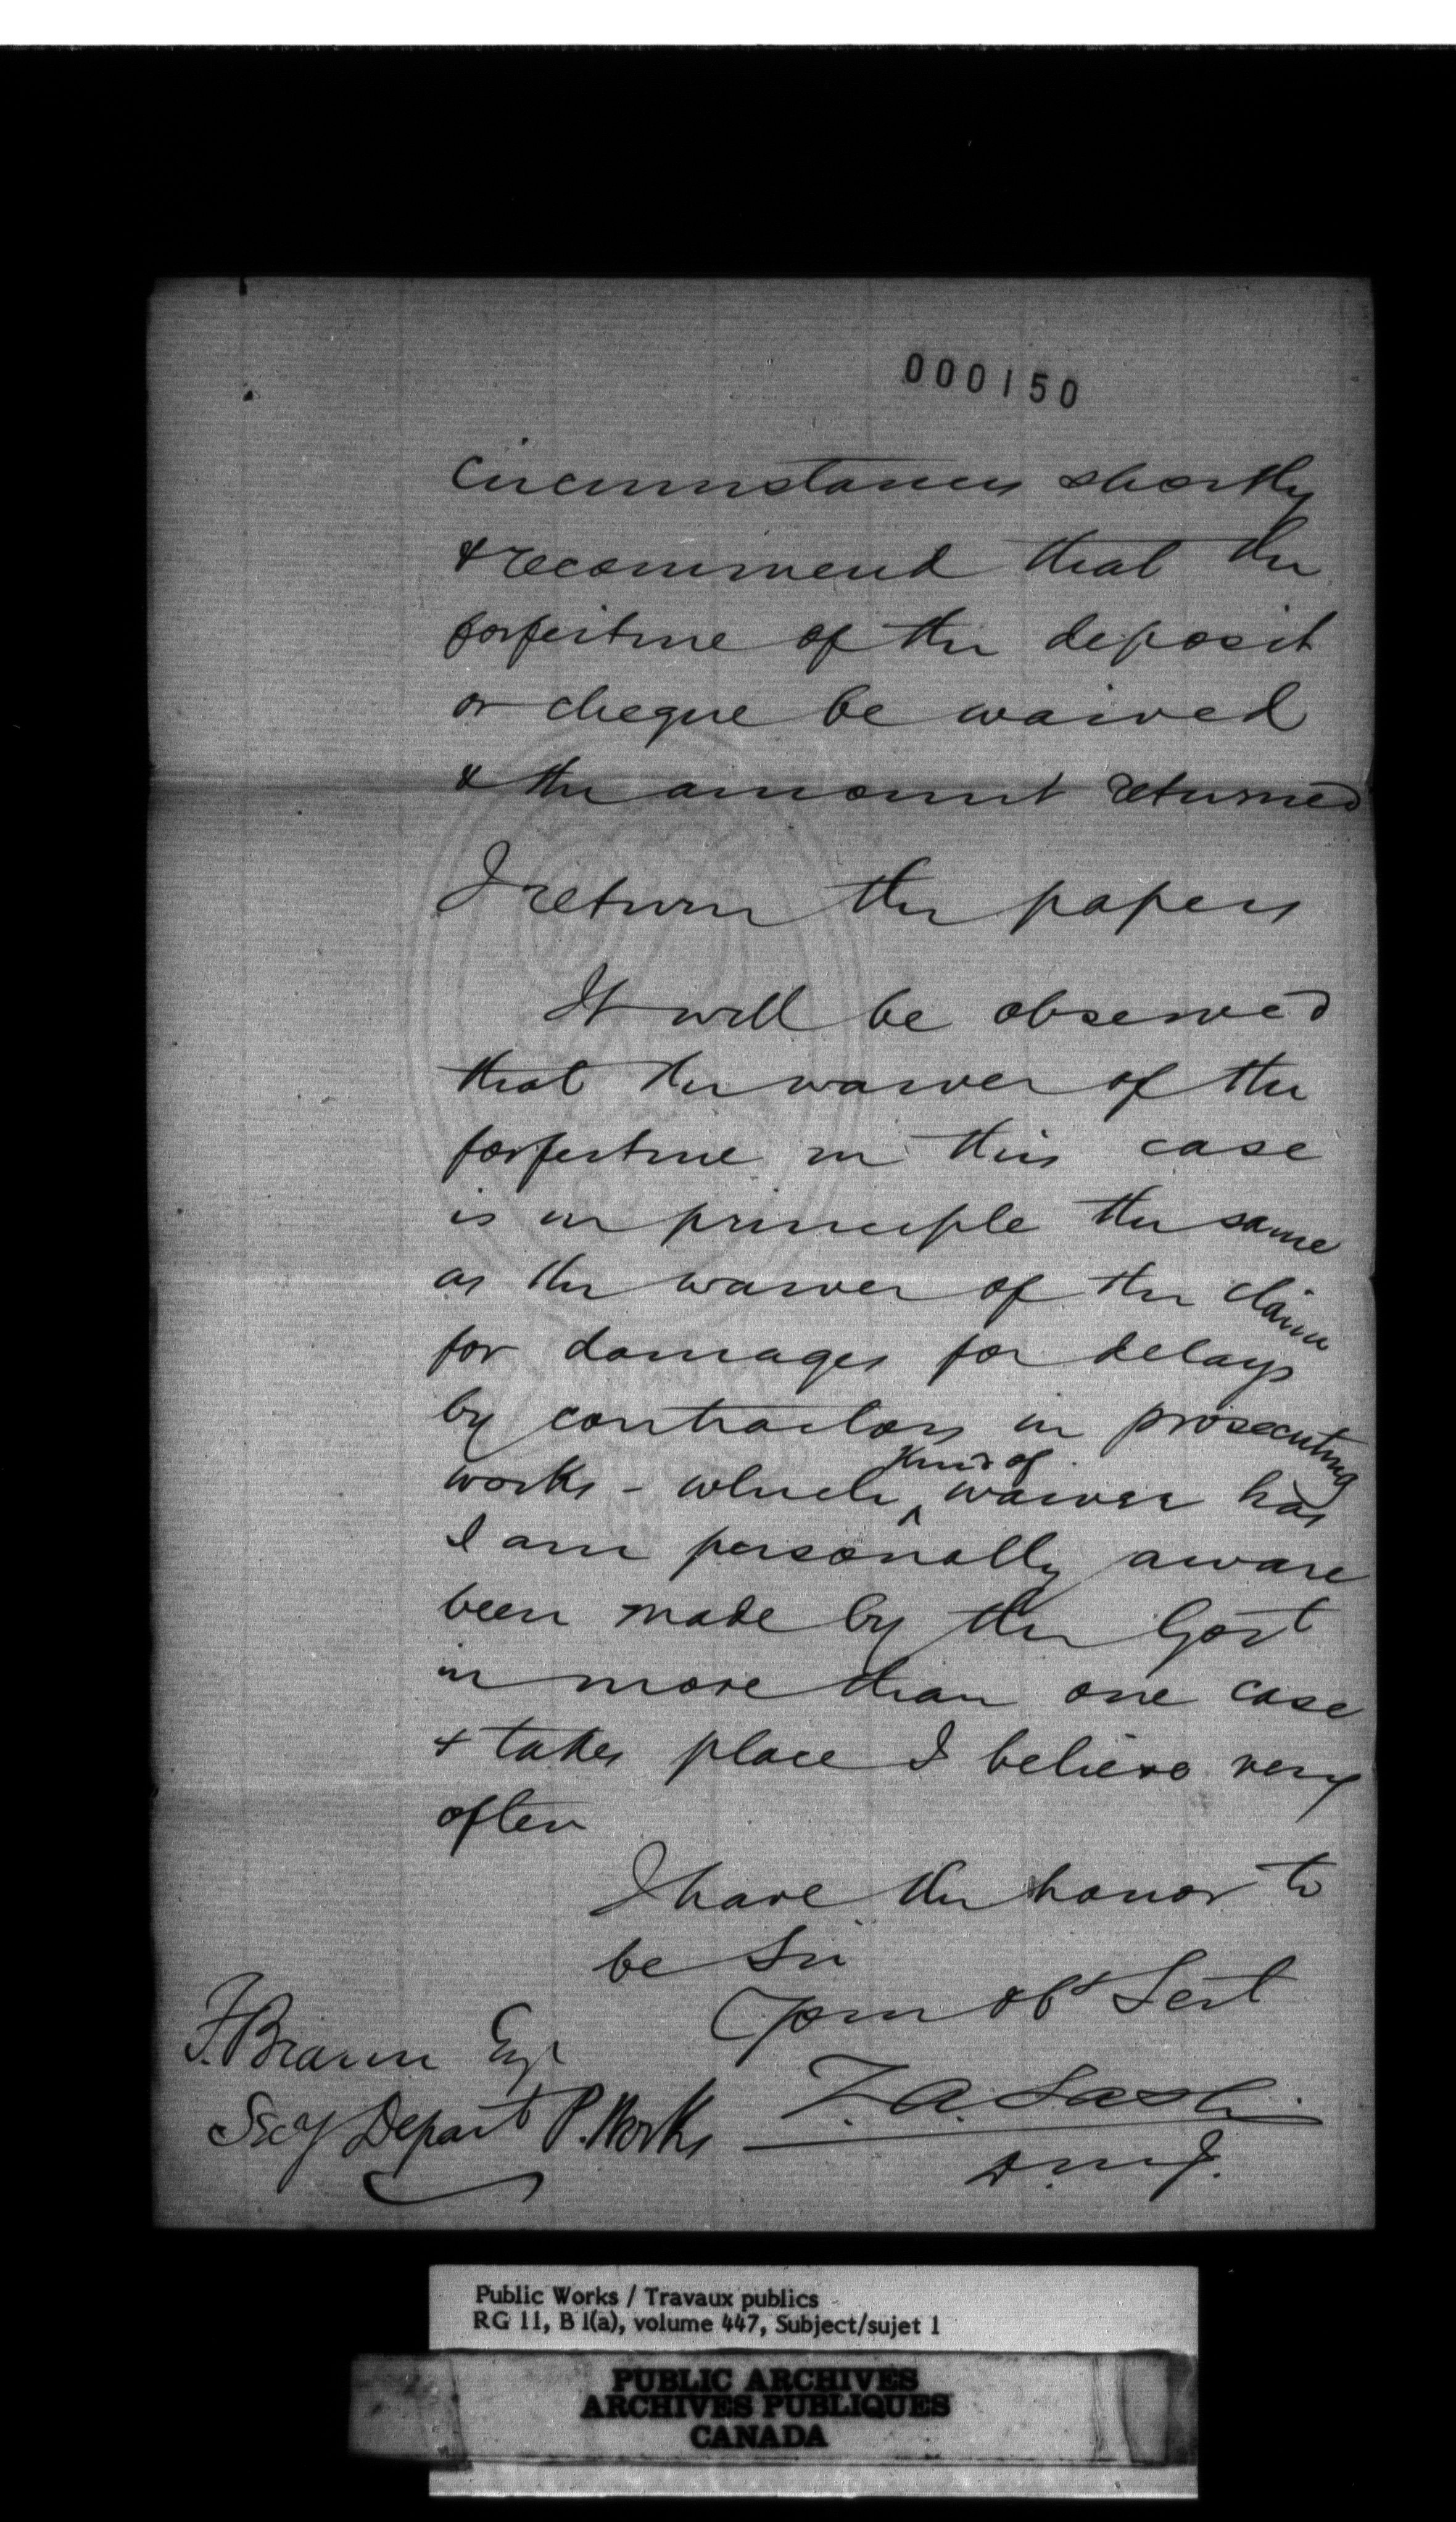 000150
circumstances shortly
& recommend that the
forfeiture of the deposit
or cheque be waived
& the amount returned
I return the papers
It will be observed
that the waiver of the
forfeiture in this case
is in principle the same
as the waiver of the claim
for damages for delays
by contractors in prosecuting
kind of
works - which ^ waiver has
I am personally aware
been made by the Govt
in more than one case
& takes place I believe very
often
I have the honor to
be Sir
Your obt Sert
F. Braun Esqr
Z. A. Lash
Secy Depart P. Works
D.M.J.
Public Works / Travaux publics
RG 11, B 1(a), volume 447, Subject/sujet 1
PUBLIC ARCHIVES
ARCHIVES PUBLIQUES
CANADA